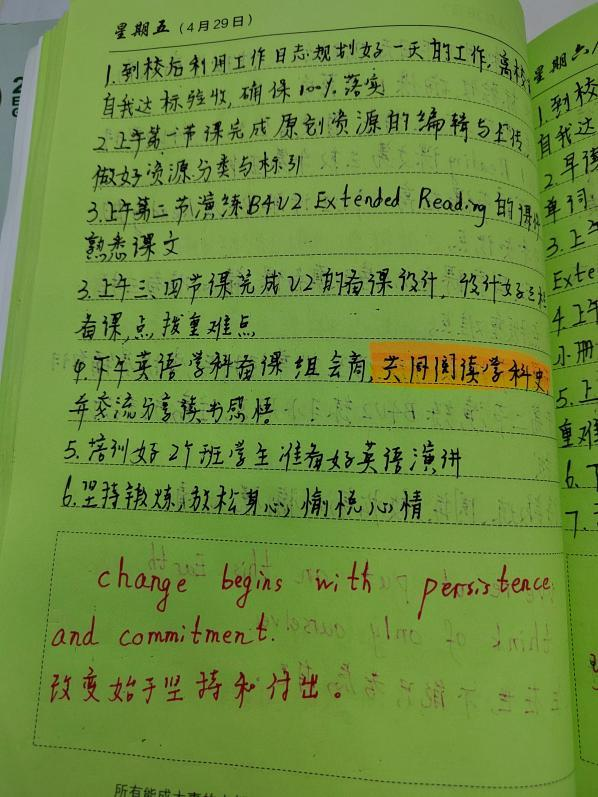 星期五（4月29日）
1.到校后利用工作日志规划好一天的工作,离校
自我达标验收,确保100%落实
2.上午第一节课完成原创资源的编辑与上传,
做好资源分类与标引
3.上午第二节演练B4U2 Extended Reading 的课件
熟悉课文
3.上午三、四节课完成U2的备课设计,设计好
备课,点拨重难点
4.下午英语学科备课组会商,共同阅读学科史
并交流分享读书感悟
5.培训好2个班学生准备好英语演讲
6.坚持锻炼,放松身心,愉悦心情
change begins with persistence
and commitment.
改变始于坚持和付出。
星期六
1.到校
自我达
2.早读
单词
3.上午
Exte
4.上午
小册
5.上
重难
6.下
7.